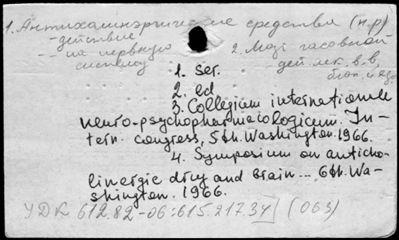 1. Антихолинэргические средства (н.р)
- действие
-- на нервную 2. Мозг головной
систему - дей. лек. в.в,
1. ser.
2. ed
3. Collegium internationale
neuro-psychopharmacologicum. In-
tern. congress, 5th. Washington. 1966.
4. Symposium on anticho-
linergic drug and brain... 6th. Wa-
shington. 1966.
УДК 612.82-06:615.217.34 (063)